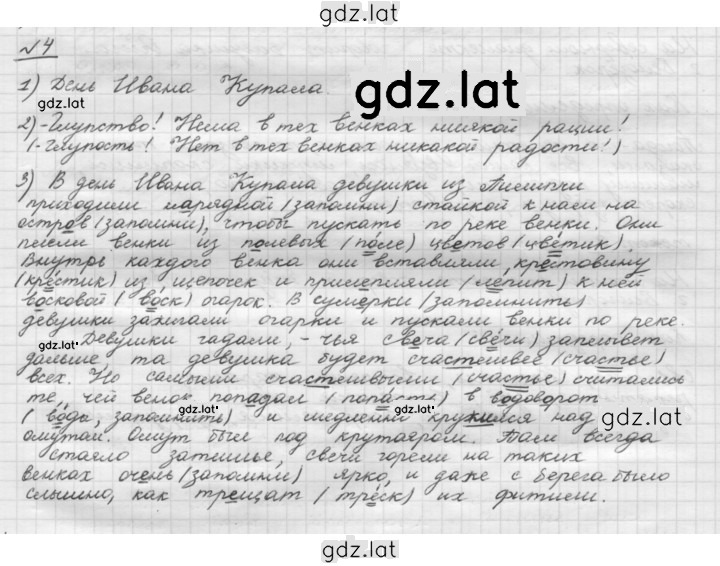 gdz.lat
№4
1) День Ивана Купала.
gdz.lat
gdz.lat
2) -Глупство! Нема в тех венках ниякой рации!
(-Глупость! Нет в тех венках никакой радости!)
3) В день Ивана Купала девушки из
приходили нарядной (запомни) стайкой к нам на
остров (запомни), чтобы пускать по реке венки. Они
плели венки из полевых (поле) цветов (цветик).
Внутрь каждого венка они вставляли крестовину
(крестик) из щепочек и прилепляли (лепит) к ней
восковой (воск) огарок. В сумерки (запомнить)
девушки зажигали огарки и пускали венки по реке.
Девушки гадали, - чья свеча (свечи) заплывет
gdz.lat
gdz.lat
дальше, та девушка будет счастливее (счастье)
всех. Но самыми счастливыми (счастье) считались
те, чей венок попадал (попасть) в водоворот
gdz.lat
gdz.lat
(воды, запомнить) и медленно кружился над
омутом. Омут был под крутояром. Там всегда
стояло затишье, свечи горели на таких
венках очень (запомни) ярко, и даже с берега было
слышно, как трещат (треск) их фитили.
gdz.lat